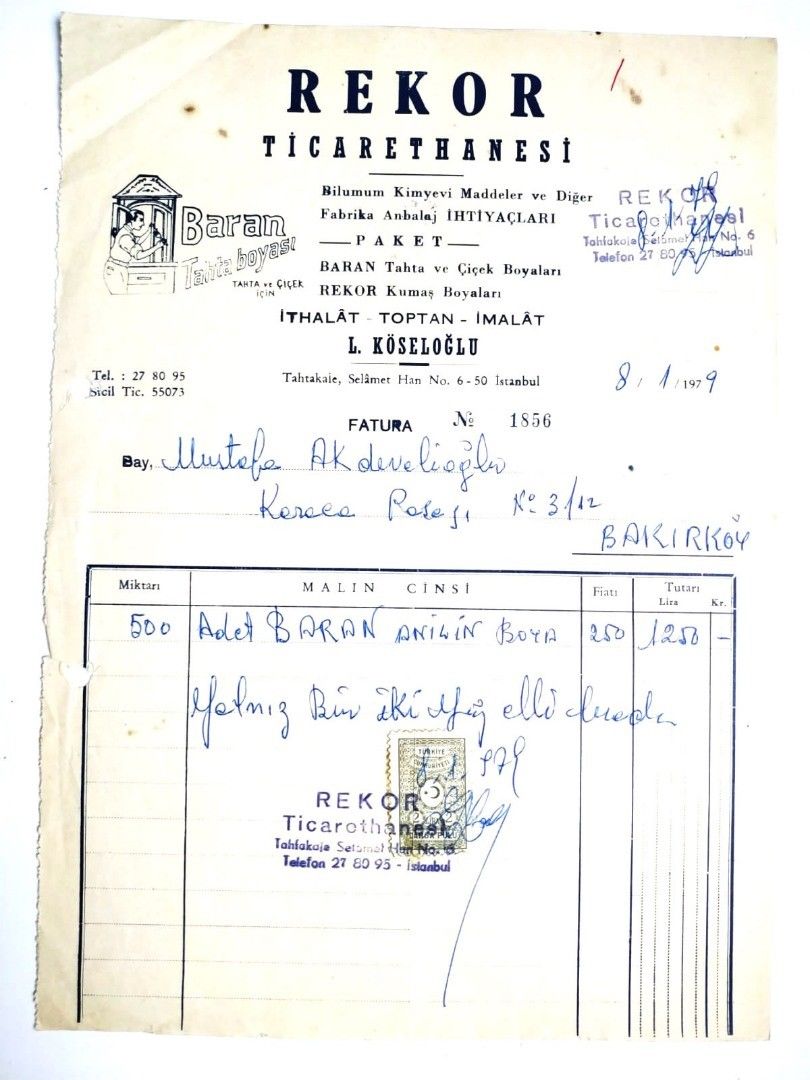 REKOR
TİCARETHANESİ
Bilumum Kimyevi Maddeler ve Diğer
Fabrika Anbalaj İHTİYAÇLARI
PAKET
BARAN Tahta ve Çiçek Boyaları
REKOR Kumaş Boyaları
Baran
Tahta boyası
TAHTA ve ÇİÇEK
İÇİN
REKOR
Ticarethanesi
Tahtakale Selâmet Han No. 6
Telefon 27 80 95 - İstanbul
8.1.979
İTHALÂT - TOPTAN - İMALÂT
L. KÖSELOĞLU
Tel. : 27 80 95
Sicil Tic. 55073
Tahtakale, Selâmet Han No. 6-50 İstanbul
8 / 1 / 1979
FATURA № 1856
Bay, Mustafa Akdevelioğlu
Karaca Pasajı No 3/12
BAKIRKÖY
Miktarı MALIN CİNSİ Fiatı Tutarı
Lira Kr.
500 Adet BARAN ANİLİN BOYA 250 1250 -
Yalnız Bin iki Yüz elli liradır
TÜRKİYE
CUMHURİYETİ
8.1.979
REKOR
Ticarethanesi
Tahtakale Selâmet Han No. 6
Telefon 27 80 95 - İstanbul
DAMGA PULU